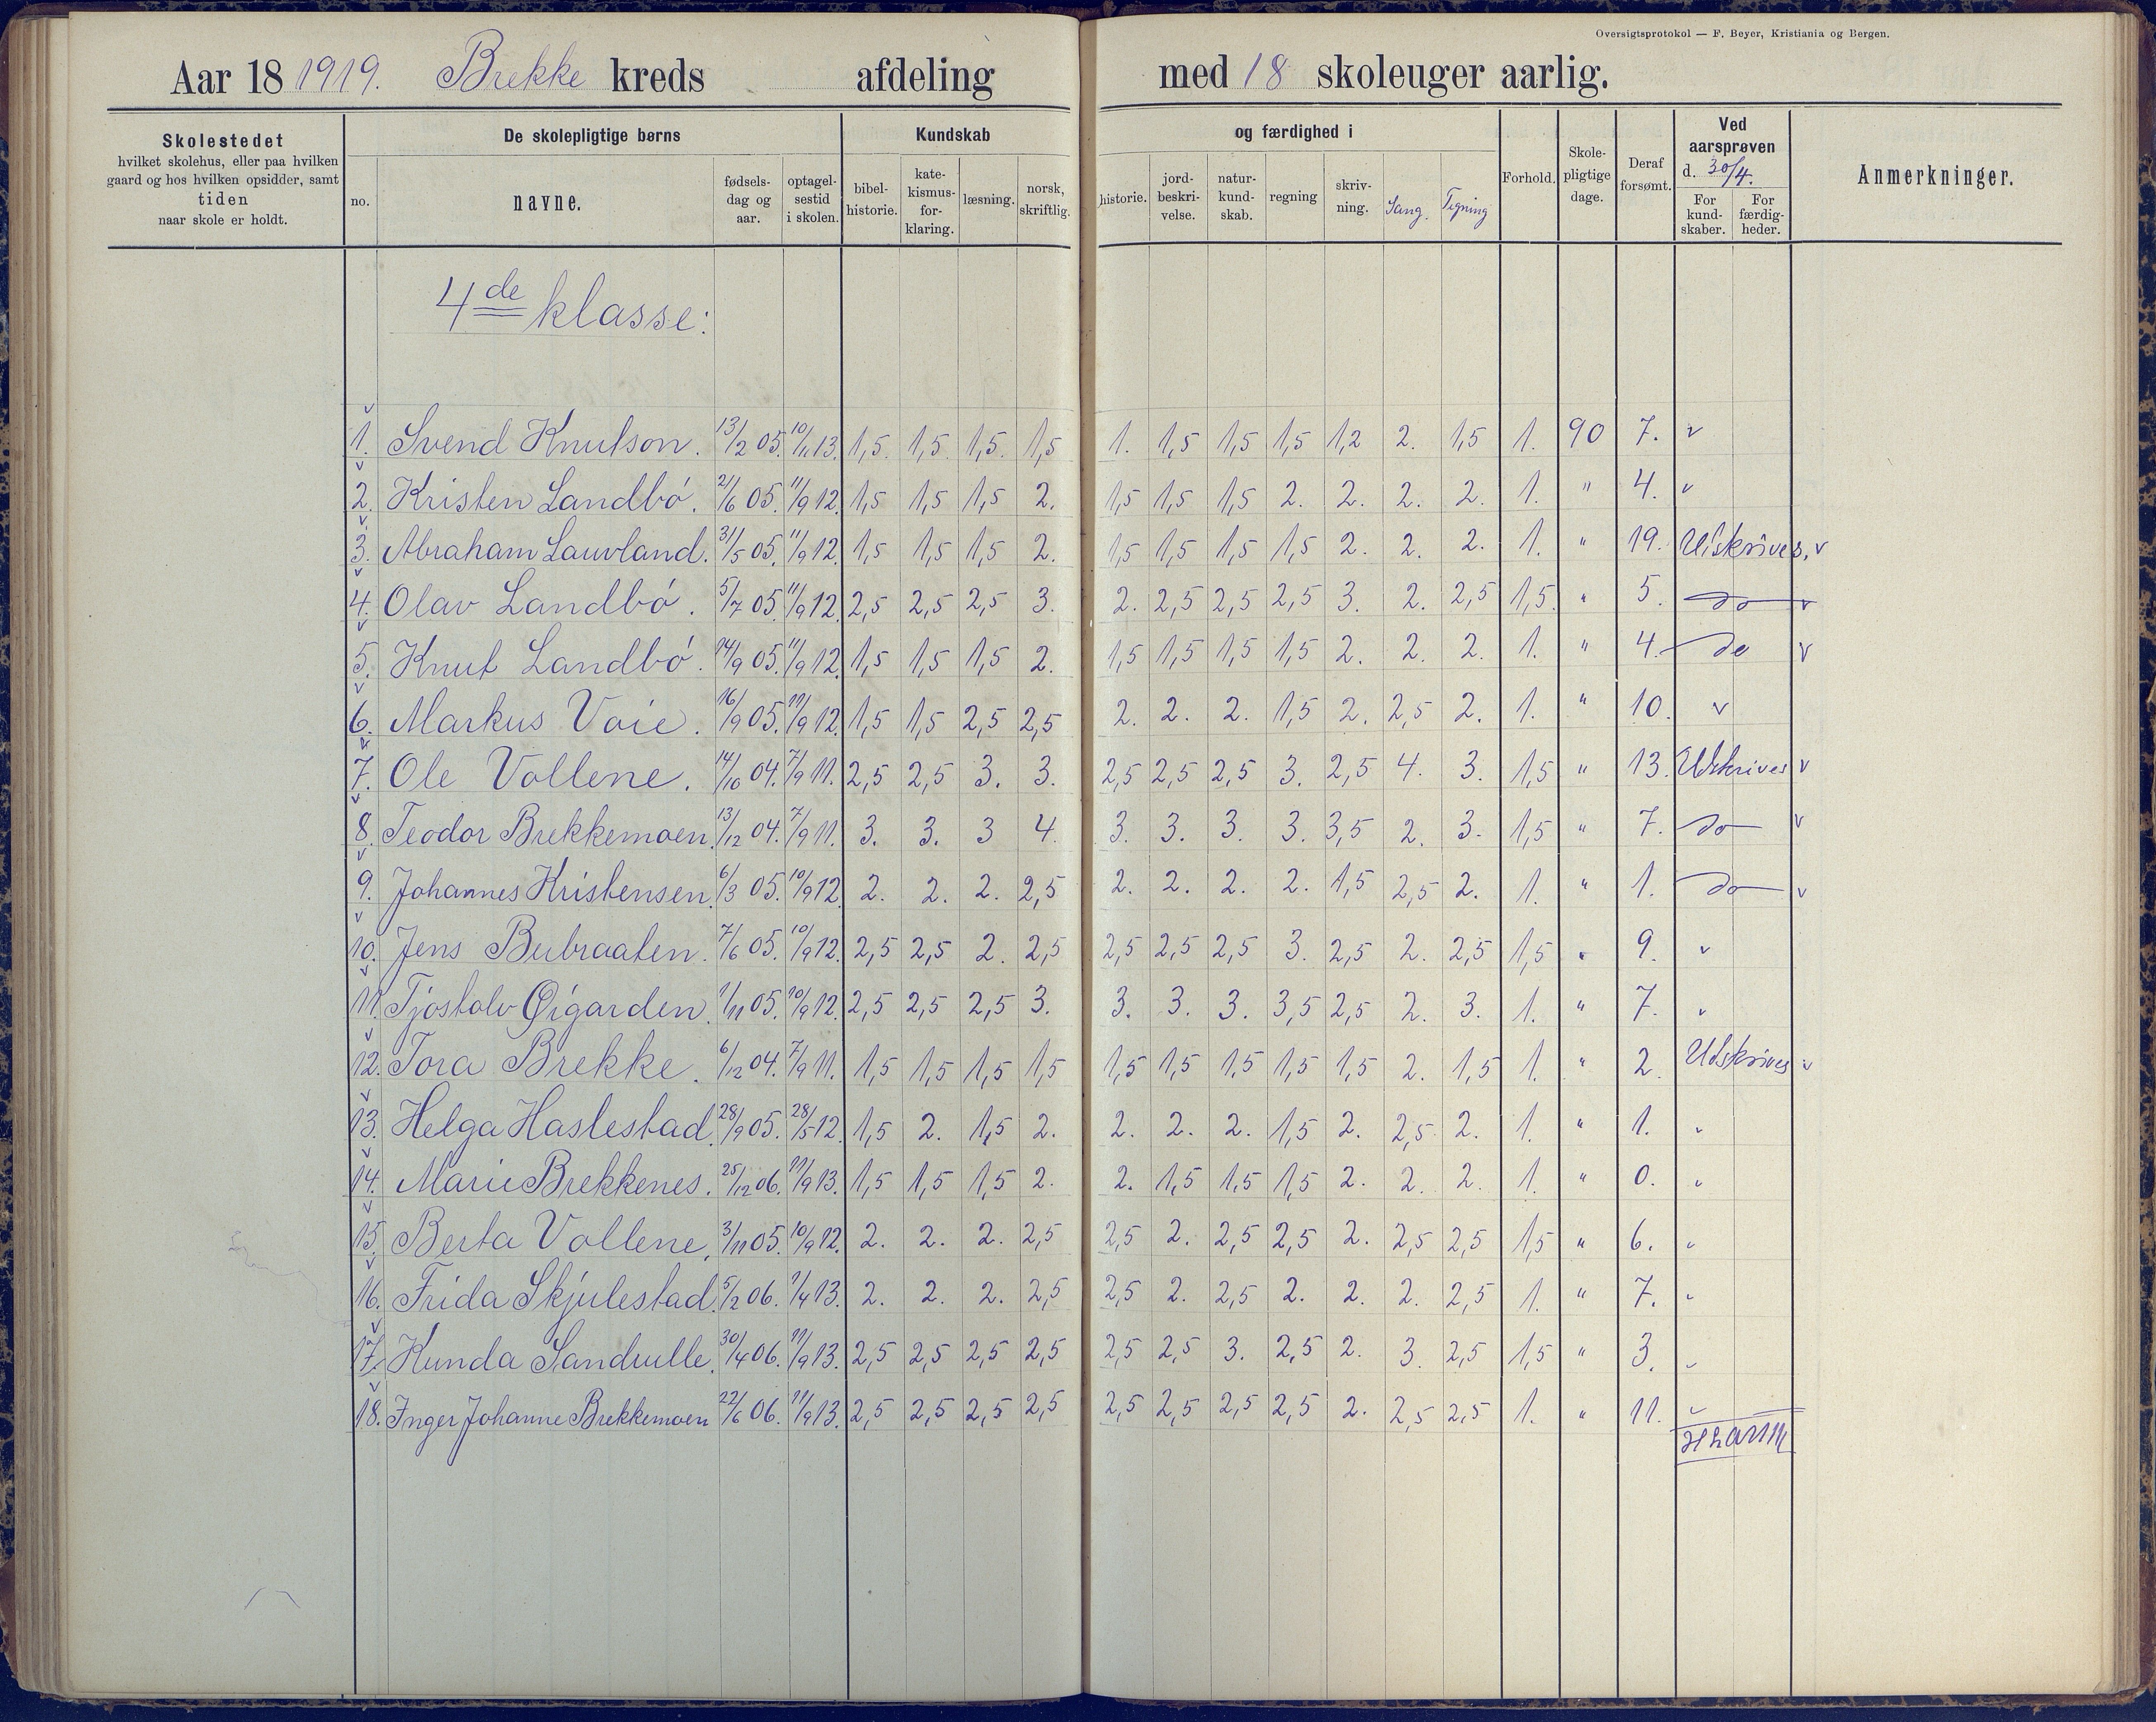 Oversigtsprotokol — F. Beyer, Kristiania og Bergen.
Aar 18 1919. Brekke kreds afdeling med 18 skoleuger aarlig.
Skolestedet hvilket skolehus, eller paa hvilken gaard og hos hvilken opsidder, samt tiden naar skole er holdt.
De skolepligtige børns
no. navne. fødsels-dag og aar. optagel-sestid i skolen.
Kundskab og færdighed i
bibel-historie. kate-kismus-for-klaring. læsning. norsk, skriftlig. historie. jord-beskri-velse. natur-kund-skab. regning skriv-ning. Sang. Tegning
Forhold. Skole-pligtige dage. Deraf forsømt.
Ved aarsprøven d. 30/4.
For kund-skaber. For færdig-heder.
Anmerkninger.
4de klasse:
1. Svend Knutson. 13/2 05. 10/11 13. 1,5. 1,5. 1,5. 1,5 1. 1,5 1,5 1,5 1,2 2. 1,5 1. 90 7. v
2. Kristen Landbö. 21/6 05. 11/9 12. 1,5 1,5 1,5 2. 1,5 1,5 1,5 2. 2. 2. 2. 1. " 4. v
3. Abraham Lauvland. 31/5 05. 11/9 12. 1,5 1,5 1,5 2. 1,5 1,5 1,5 1,5 2. 2. 2. 1. " 19. Utskrives, v
4. Olav Landbö. 5/7 05. 11/9 12. 2,5 2,5 2,5 3. 2. 2,5 2,5 2,5 3. 2. 2,5 1,5. " 5. do v
5. Knut Landbö. 14/9 05. 11/9 12. 1,5 1,5 1,5 2. 1,5 1,5 1,5 1,5 2. 2. 2. 1. " 4. do v
6. Markus Voie. 16/9 05. 11/9 12. 1,5 1,5 2,5 2,5 2. 2. 2. 1,5 2. 2,5 2. 1. " 10. v
7. Ole Vollene. 14/10 04. 7/9 11. 2,5 2,5 3. 3. 2,5 2,5 2,5 3. 2,5 4. 3. 1,5 " 13. Utskrives v
8. Teodor Brekkemoen. 13/12 04. 7/9 11. 3. 3. 3 4. 3. 3. 3. 3. 3,5 2. 3. 1,5 " 7. do v
9. Johannes Kristensen. 6/3 05. 10/9 12. 2. 2. 2. 2,5 2. 2. 2. 2. 1,5 2,5 2. 1. " 1. do v
10. Jens Bubraaten. 7/6 05. 10/9 12. 2,5 2,5 2. 2,5 2,5 2,5 2,5 3. 2,5 2. 2,5 1,5 " 9. v
11. Tjostolv Øigarden. 1/11 05. 10/9 12. 2,5 2,5 2,5 3. 3. 3. 3. 3,5 2,5 2. 3. 1. " 7. v
12. Tora Brekke. 6/12 04. 7/9 11. 1,5 1,5 1,5 1,5 1,5 1,5 1,5 1,5 1,5 2. 1,5 1. " 2. Utskrives v
13. Helga Haslestad. 28/9 05. 28/5 12. 1,5 2. 1,5 2. 2. 2. 2. 1,5 2. 2,5 2. 1. " 1. v
14. Marie Brekkenes. 25/12 06. 11/9 13. 1,5 1,5 1,5 2. 2. 1,5 1,5 1,5 2. 2. 2. 1. " 0. v
15. Berta Vollene. 3/11 05. 10/9 12. 2. 2. 2. 2,5 2,5 2. 2,5 2,5 2. 2,5 2,5 1,5 " 6. v
16. Frida Skjulestad. 5/2 06. 1/4 13. 2. 2. 2. 2,5 2,5 2. 2,5 2. 2. 2. 2,5 1. " 7. v
17. Kunda Sandvulle. 30/4 06. 11/9 13. 2,5 2,5 2,5 2,5 2,5 2,5 3. 2,5 2. 3. 2,5 1,5 " 3. v
18. Inger Johanne Brekkemoen 22/6 06. 11/9 13. 2,5 2,5 2,5 2,5 2,5 2,5 2,5 2,5 2. 2,5 2,5 1. " 11. v